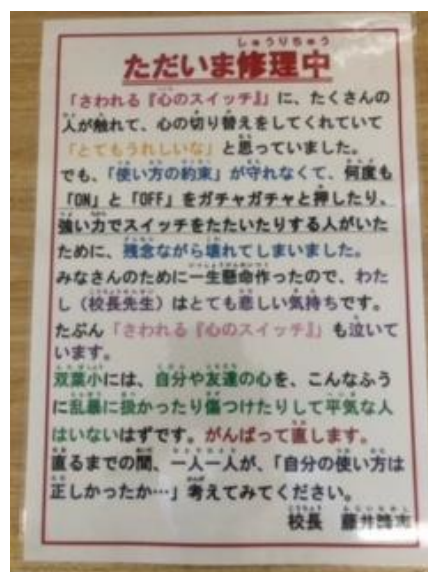 しゅうりちゅう
ただいま修理中
「さわれる『心のスイッチ』」に、たくさんの
人が触れて、心の切り替えをしてくれていて
「とてもうれしいな」と思っていました。
でも、「使い方の約束」が守れなくて、何度も
「ON」と「OFF」をガチャガチャと押したり、
強い力でスイッチをたたいたりする人がいた
ために、残念ながら壊れてしまいました。
みなさんのために一生懸命作ったので、わた
し（校長先生）はとても悲しい気持ちです。
たぶん「さわれる『心のスイッチ』」も泣いて
います。
双葉小には、自分や友達の心を、こんなふう
に乱暴に扱かったり傷つけたりして平気な人
はいないはずです。がんばって直します。
直るまでの間、一人一人が、「自分の使い方は
正しかったか…」考えてみてください。
校長　藤井